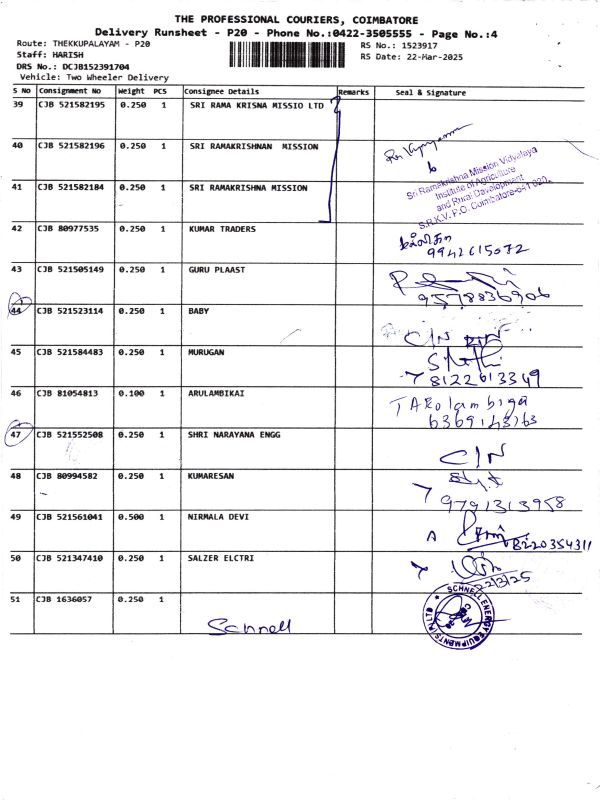 THE PROFESSIONAL COURIERS, COIMBATORE
Delivery Runsheet - P20 - Phone No.:0422-3505555 - Page No.:4
Route: THEKKUPALAYAM - P20
RS No.: 1523917
Staff: HARISH
RS Date: 22-Mar-2025
DRS No.: DCJB152391704
Vehicle: Two Wheeler Delivery
S No Consignment No Weight PCS Consignee Details Remarks Seal & Signature
39 CJB 521582195 0.250 1 SRI RAMA KRISNA MISSIO LTD
40 CJB 521582196 0.250 1 SRI RAMAKRISHNAN MISSION
41 CJB 521582184 0.250 1 SRI RAMAKRISHNA MISSION
Sri Ramakrishna Mission Vidyalaya
Institute of Agriculture
and Rural Development
S.R.K.V. P.O. Coimbatore-641 020.
42 CJB 80977535 0.250 1 KUMAR TRADERS
9942615072
43 CJB 521505149 0.250 1 GURU PLAAST
9578836906
44 CJB 521523114 0.250 1 BABY
C/N
45 CJB 521584483 0.250 1 MURUGAN
8122613349
46 CJB 81054813 0.100 1 ARULAMBIKAI
6369143763
47 CJB 521552508 0.250 1 SHRI NARAYANA ENGG
C/N
48 CJB 80994582 0.250 1 KUMARESAN
9791313958
49 CJB 521561041 0.500 1 NIRMALA DEVI
8220354311
50 CJB 521347410 0.250 1 SALZER ELCTRI
22/3/25
51 CJB 1636057 0.250 1
Schnell
SCHNELL ENERGY EQUIPMENTS (P) LTD